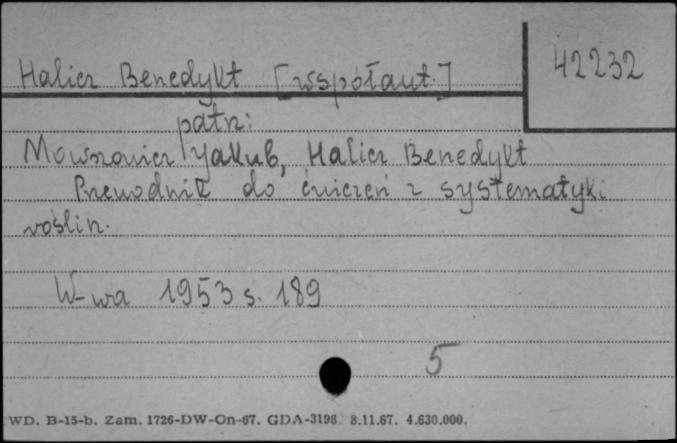 42232
Halicz Benedykt [współaut.]
patrz:
Mowszowicz Jakub, Halicz Benedykt
Przewodnik do ćwiczeń z systematyki
roślin.
W-wa 1953 s. 189
5
WD. B-15-b. Zam. 1726-DW-On-67. GDA-3198. 8.11.67. 4.630.000.